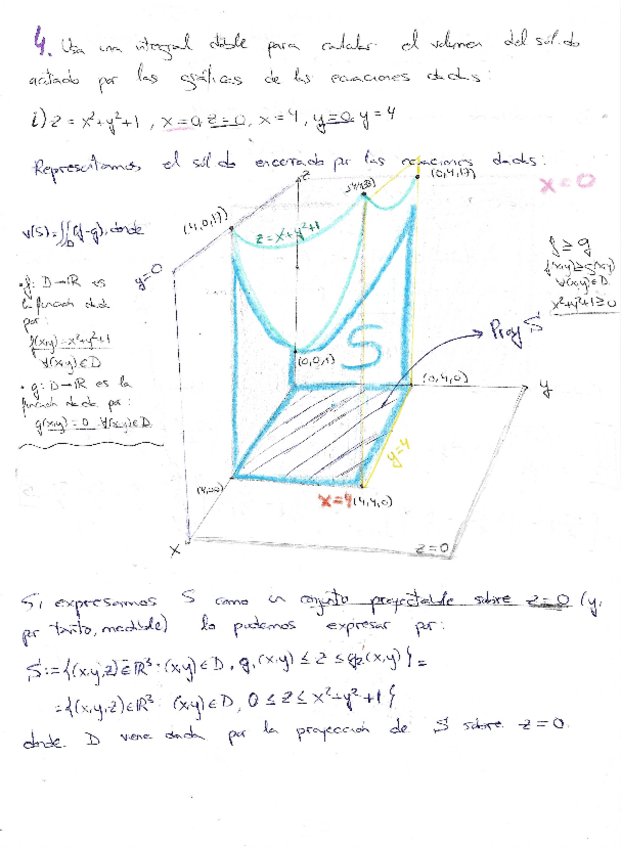 4. Usa una integral doble para calcular el volumen del sólido
acotado por las gráficas de las ecuaciones dadas:
i) z = x²+y²+1, x=0, z=0, x=4, y=0, y=4
Representamos el sólido encerrado por las ecuaciones dadas:
x=0
z
(0,4,17)
(4,0,17)
z=x²+y²+1
V(S)=∬_D (f-g), donde
y=0
• f: D→ℝ es
la función dada
por:
f(x,y)=x²+y²+1
∀(x,y)∈D
• g: D→ℝ es la
función dada por:
g(x,y)=0 ∀(x,y)∈D
f ≥ g
f(x,y)≥g(x,y)
∀(x,y)∈D
x²+y²+1≥0
S
Proy S
(0,0,1)
(0,4,0)
y
y=4
(4,0,0)
x=4 (4,4,0)
x
z=0
Si expresamos S como un conjunto proyectable sobre z=0 (y,
por tanto, medible) lo podemos expresar por:
S:={(x,y,z)∈ℝ³: (x,y)∈D, g₁(x,y) ≤ z ≤ g₂(x,y)} =
={(x,y,z)∈ℝ³: (x,y)∈D, 0 ≤ z ≤ x²+y²+1}
donde D viene dada por la proyección de S sobre z=0.